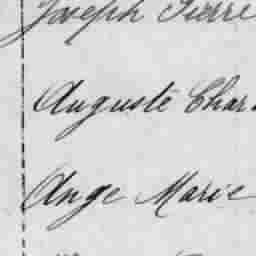 Joseph Pierre
Auguste Char
Ange Marie